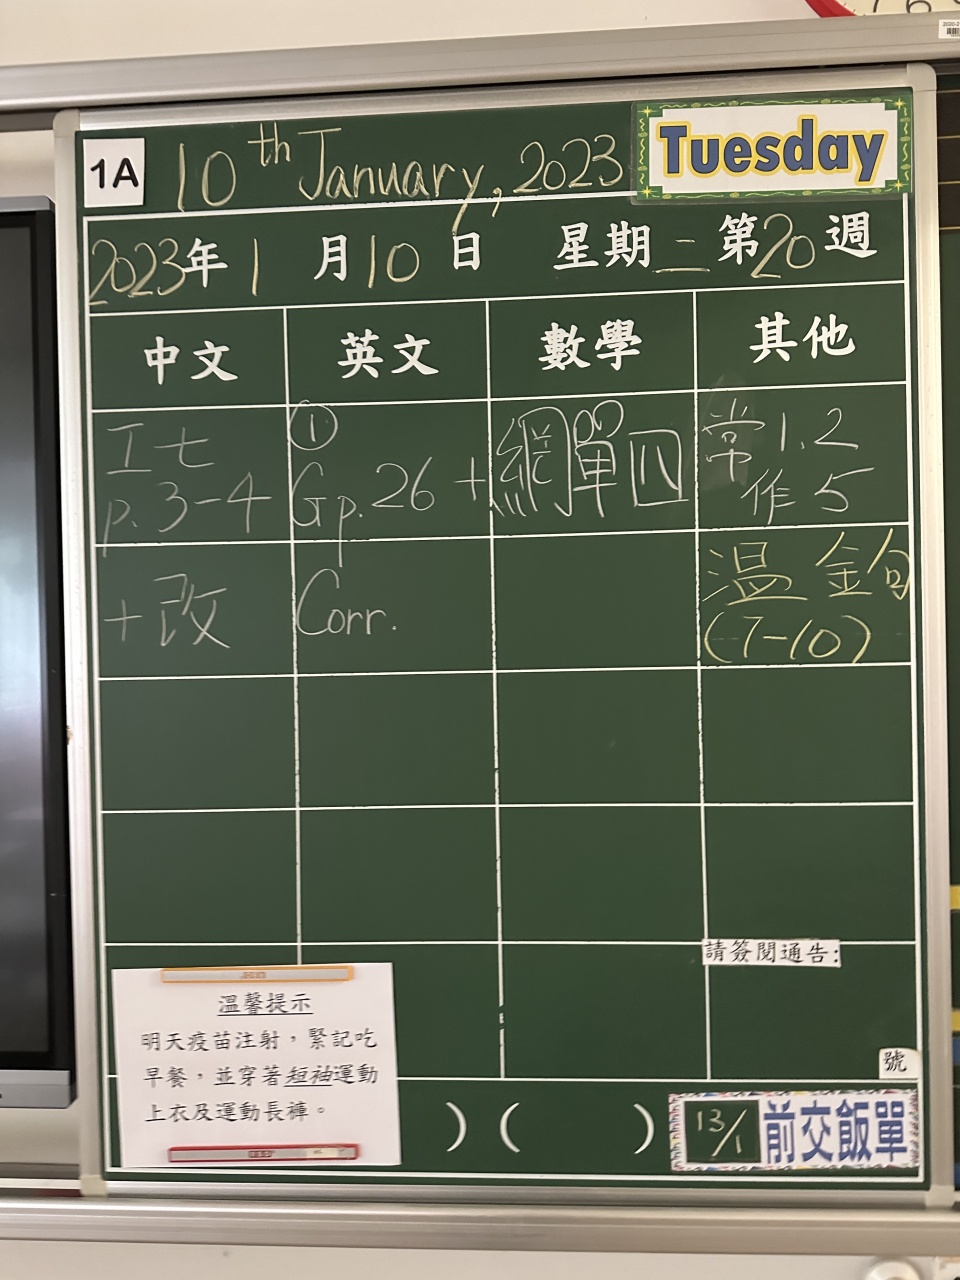 1A
10th January, 2023
Tuesday
2023年1月10日 星期二 第20週
中文 英文 數學 其他
工七
p.3-4
+改
①
Gp.26 +
Corr.
網單四
常1.2
作5
温 鉤
(7-10)
請簽閱通告:
號
溫馨提示
明天疫苗注射，緊記吃
早餐，並穿著短袖運動
上衣及運動長褲。
) ( )
13/1 前交飯單